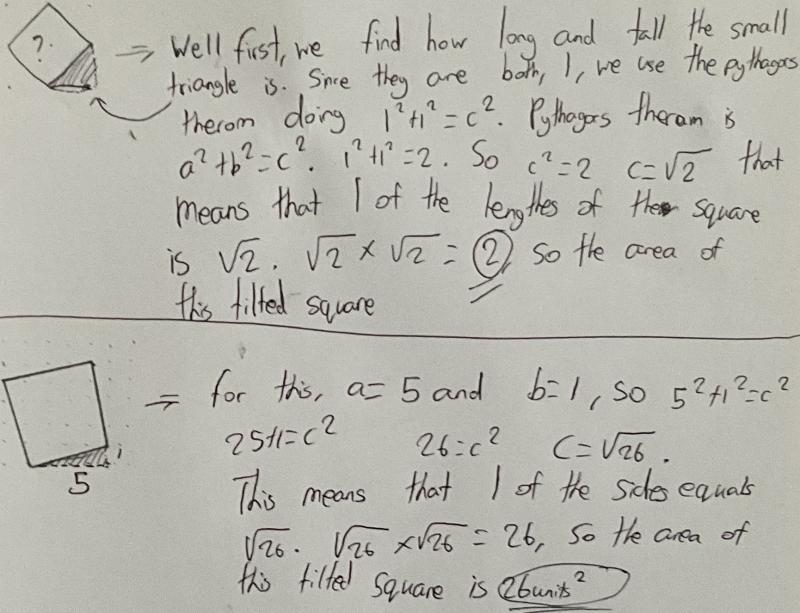 ?
⇒ Well first, we find how long and tall the small
triangle is. Since they are both, 1, we use the pythagors
therom doing 1²+1²=c². Pythagors theram is
a²+b²=c². 1²+1²=2. So c²=2 c=√2 that
means that 1 of the lengthes of the square
is √2. √2 × √2 = 2, so the area of
this tilted square
⇒ for this, a= 5 and b=1, so 5²+1²=c²
25+1=c² 26=c² C=√26.
1
5
This means that 1 of the sides equals
√26. √26 ×√26 = 26, so the area of
this tilted square is 26units²